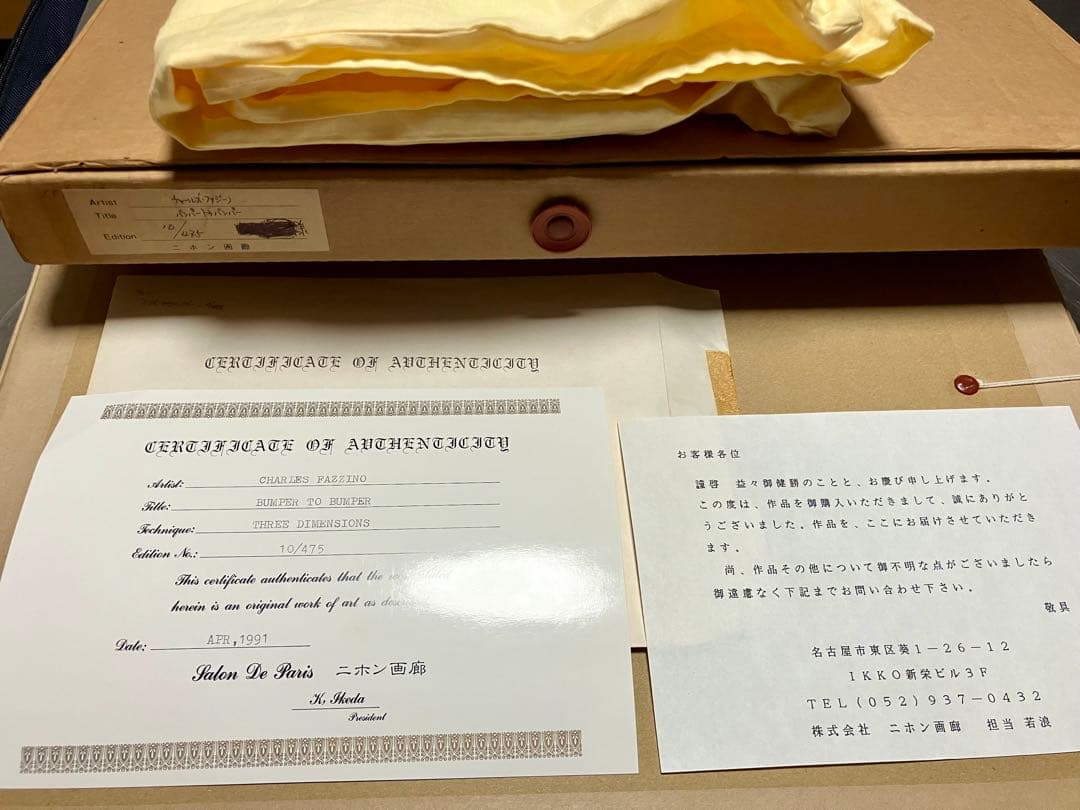 Artist チャールズ・ファジーノ
Title バンパートゥバンパー
Edition 10/475
ニホン画廊
CERTIFICATE OF AUTHENTICITY
CERTIFICATE OF AUTHENTICITY
Artist: CHARLES FAZZINO
Title: BUMPER TO BUMPER
Technique: THREE DIMENSIONS
Edition No.: 10/475
This certificate authenticates that the
herein is an original work of art as
Date: APR,1991
Salon De Paris ニホン画廊
K, Ikeda
President
お客様各位
謹啓 益々御健勝のことと、お慶び申し上げます。
この度は、作品を御購入いただきまして、誠にありがと
うございました。作品を、ここにお届けさせていただき
ます。
尚、作品その他について御不明な点がございましたら
御遠慮なく下記までお問い合わせ下さい。
敬具
名古屋市東区葵1-26-12
IKKO新栄ビル3F
TEL(052)937-0432
株式会社 ニホン画廊 担当 若浪